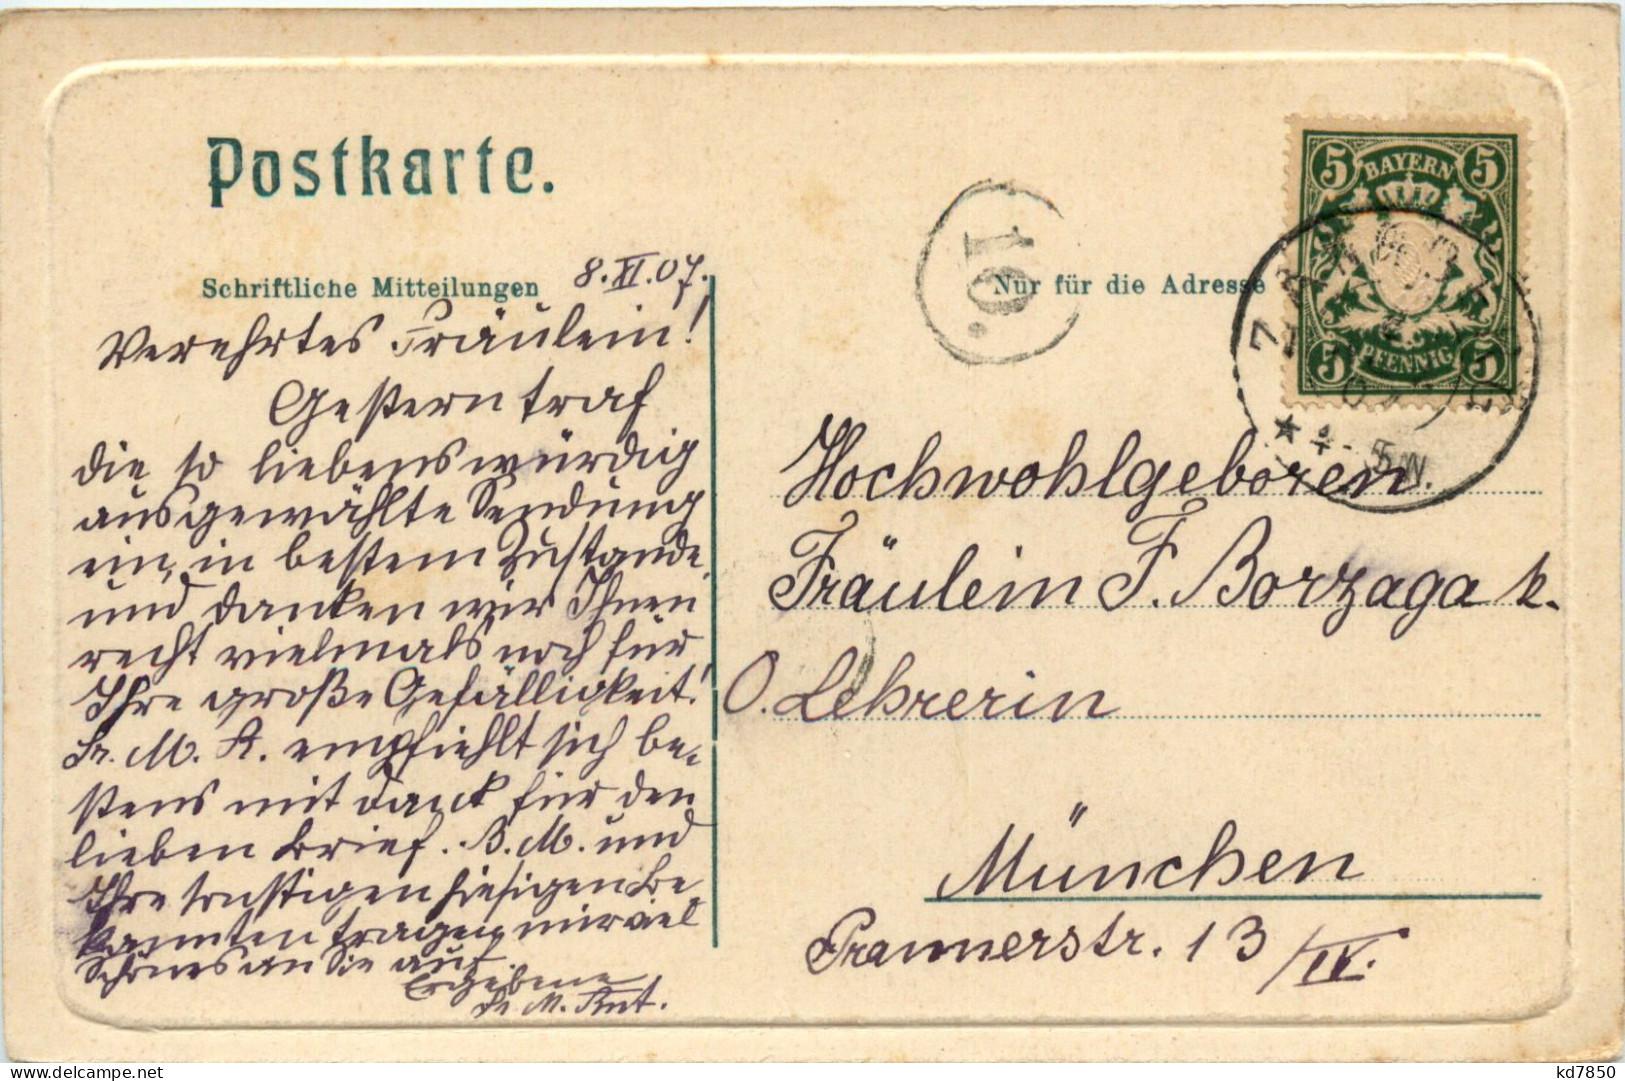 Postkarte.
Schriftliche Mitteilungen
8. XI. 07.
Verehrtes Fräulein!
Gestern traf
die so liebenswürdig
ausgewählte Sendung
ein, in bestem Zustande,
und danken wir Ihnen
recht vielmals noch für
Ihre große Gefälligkeit!
Fr. M. A. empfiehlt sich be-
stens mit Dank für den
lieben Brief. B. M. und
Ihre sonstigen hiesigen Be
kannten tragen mir viel
Schönes an Sie auf.
Ergebene
Fr. M.
10.
Nur für die Adresse
5 BAYERN 5
5 PFENNIG 5
4-5 N.
Hochwohlgeboren
Fräulein F. Borzaga k.
O. Lehrerin
München
Prannerstr. 13/IV.
kd7850